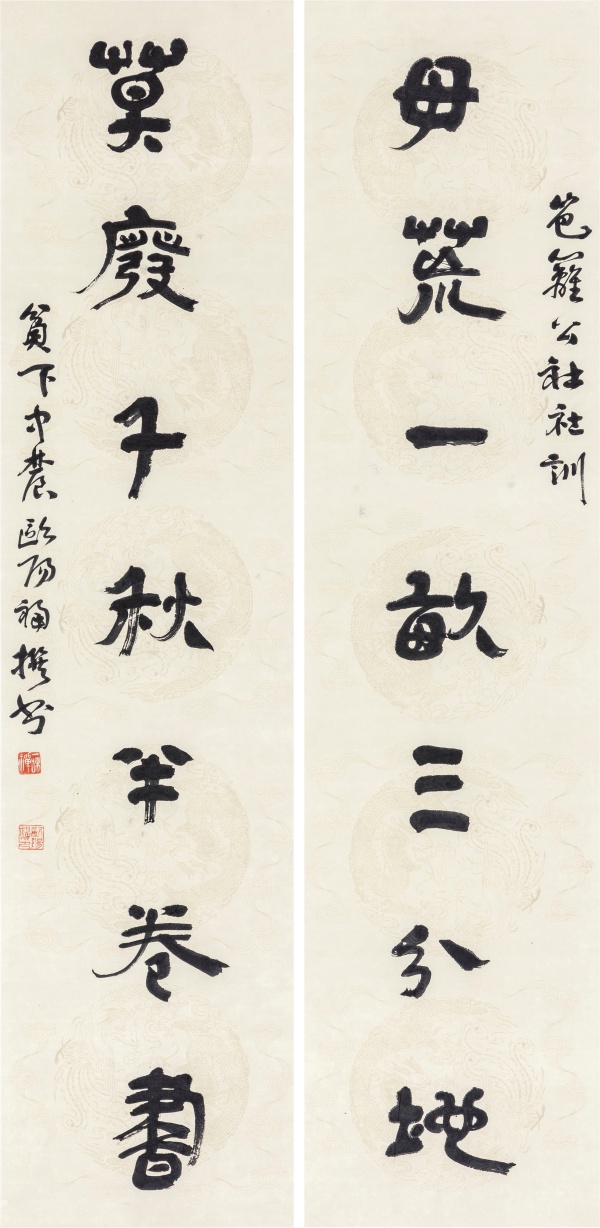 笆籬公社社訓
毋荒一畝三分地
莫廢千秋半卷書
貧下中農歐陽撰書